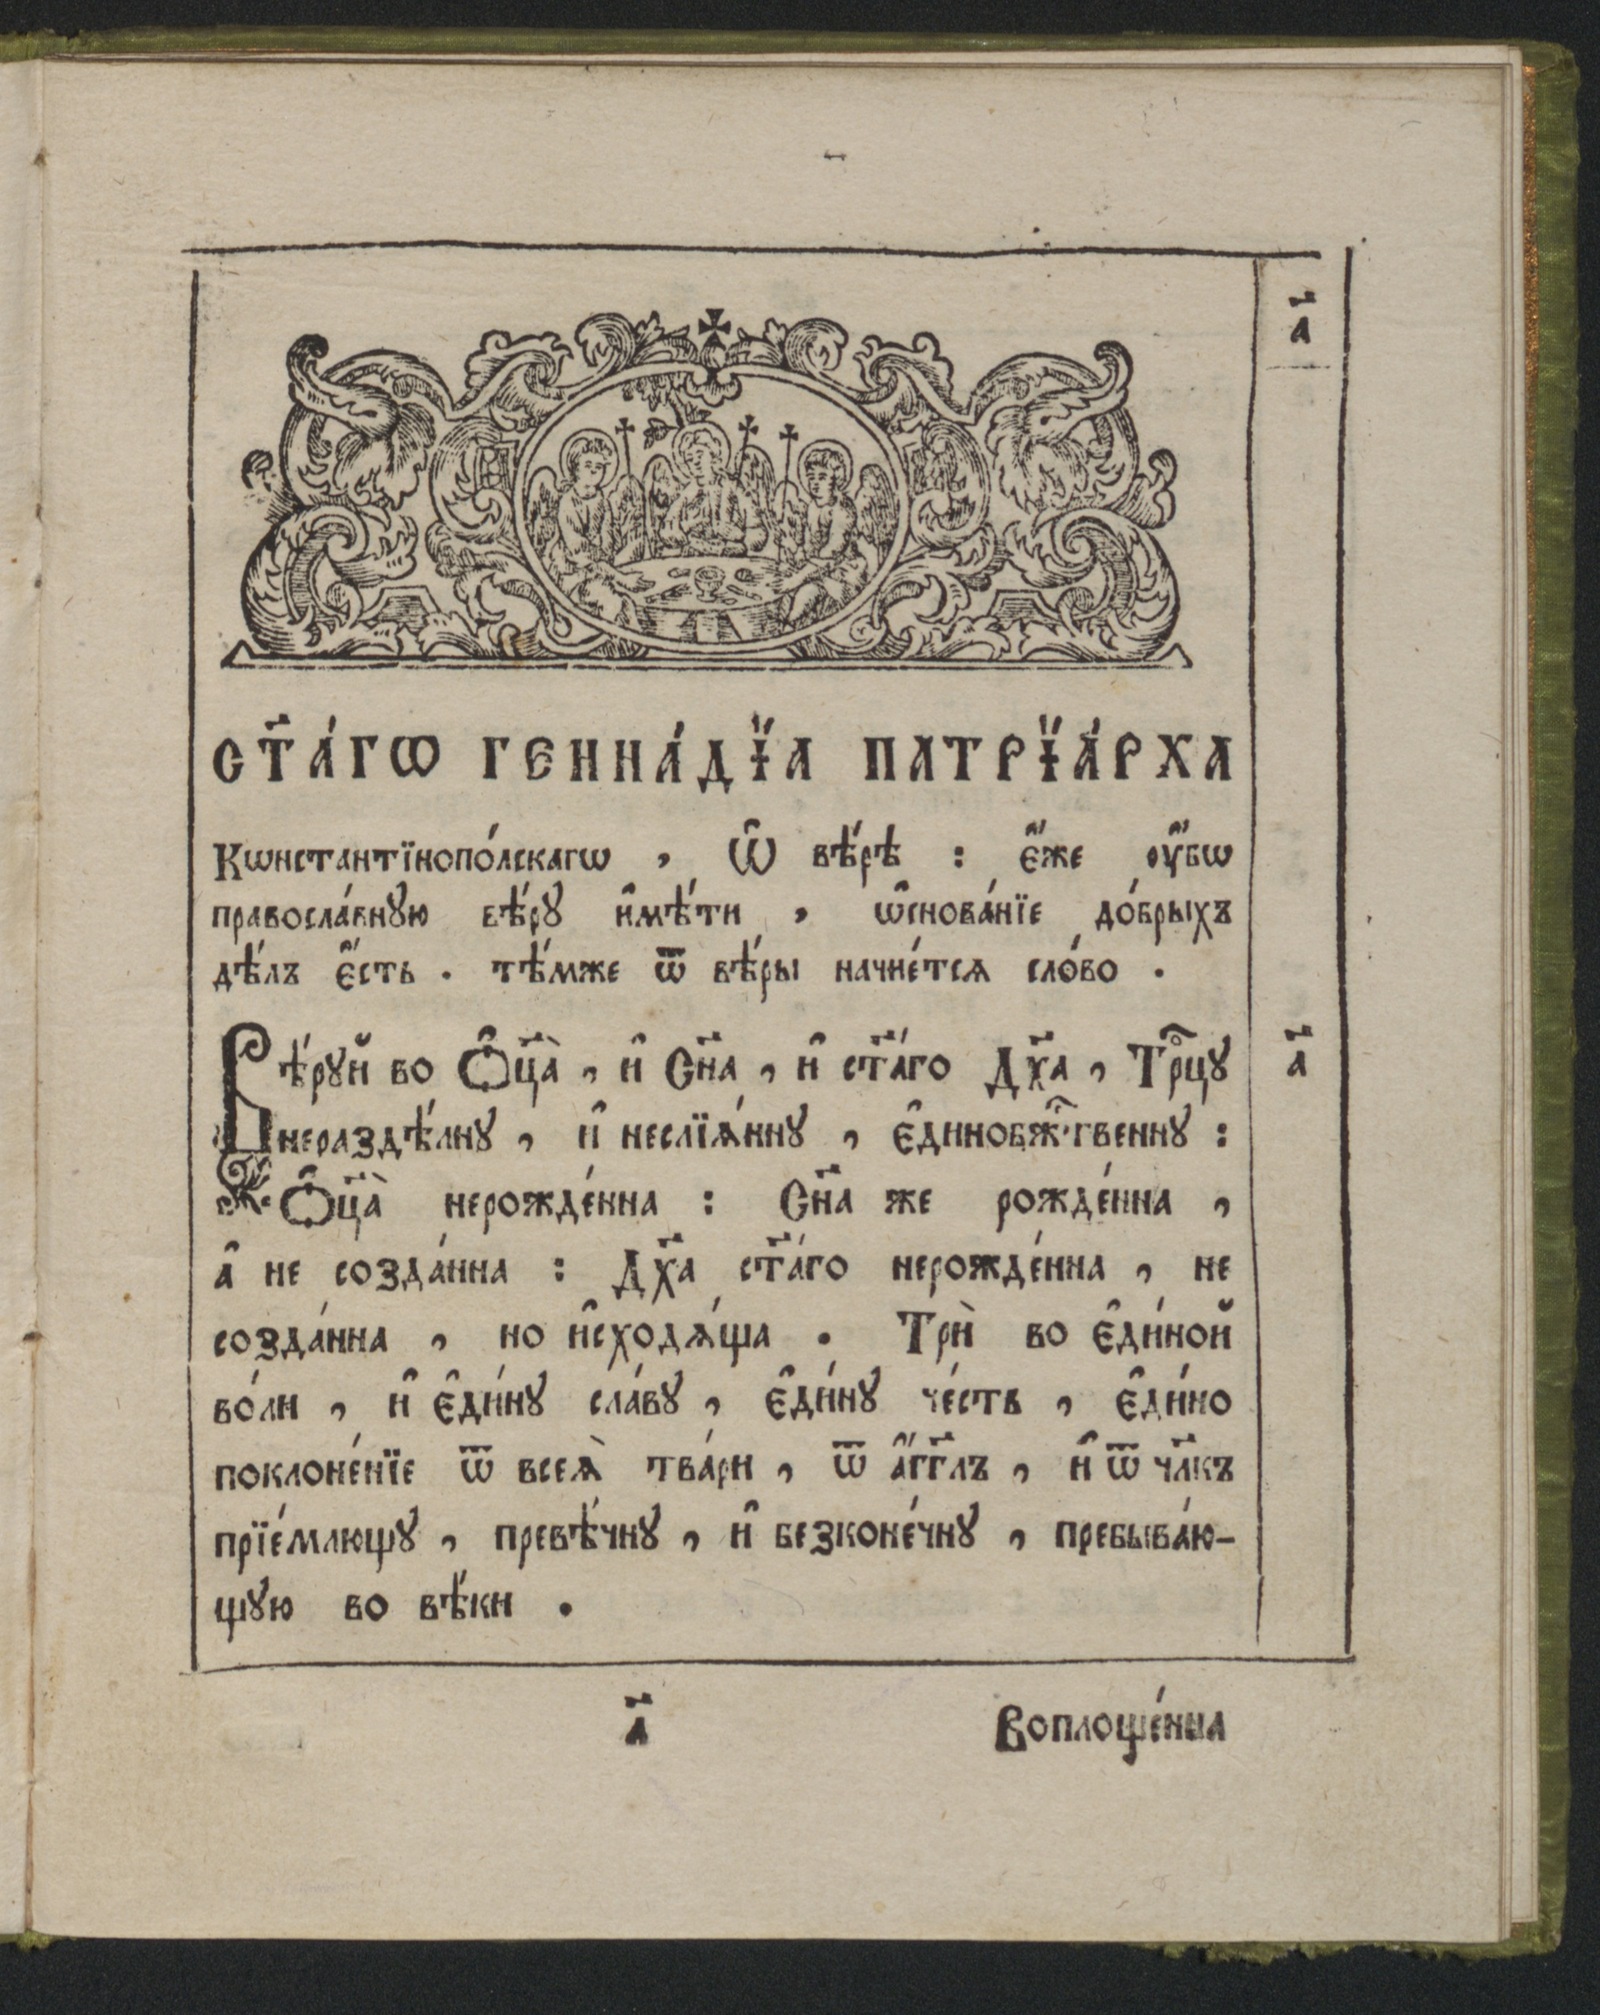 а҃
ст҃а́гѡ генна́дїа патрїа́рха
Кѡнстантїнопо́лскагѡ , Ѡ҆ вѣ́рѣ : є҆́же ᲂу҆́бѡ
правосла́внꙋю вѣ́рꙋ и҆мѣ́ти , ѡ҆снова́нїе до́брыхъ
дѣ́лъ є҆́сть . тѣ́мже ѿ вѣ́ры начне́тсѧ сло́во .
Вѣ́рꙋй во Ѻ҆ц҃а̀ , и҆ Сн҃а , и҆ ст҃а́го Дх҃а , Трⷪ҇цꙋ
нераздѣ́лнꙋ , и҆ неслїѧ́ннꙋ , є҆динобжⷭ҇твеннꙋ :
Ѻ҆ц҃а̀ нерожде́нна : Сн҃а же рожде́нна ,
а҆ не созда́нна : Дх҃а ст҃а́го нерожде́нна , не
созда́нна , но и҆сходѧ́ща . Трѝ во є҆ди́ной
во́ли , и҆ є҆ди́нꙋ сла́вꙋ , є҆ди́нꙋ че́сть , є҆ди́но
поклоне́нїе ѿ всеѧ̀ тва́ри , ѿ а҆́гг҃лъ , и҆ ѿ чл҃къ
прїе́млющꙋ , превѣ́чнꙋ , и҆ безконе́чнꙋ , пребыва́ю-
щꙋю во вѣ́ки .
а҃
а҃
Воплоще́нна